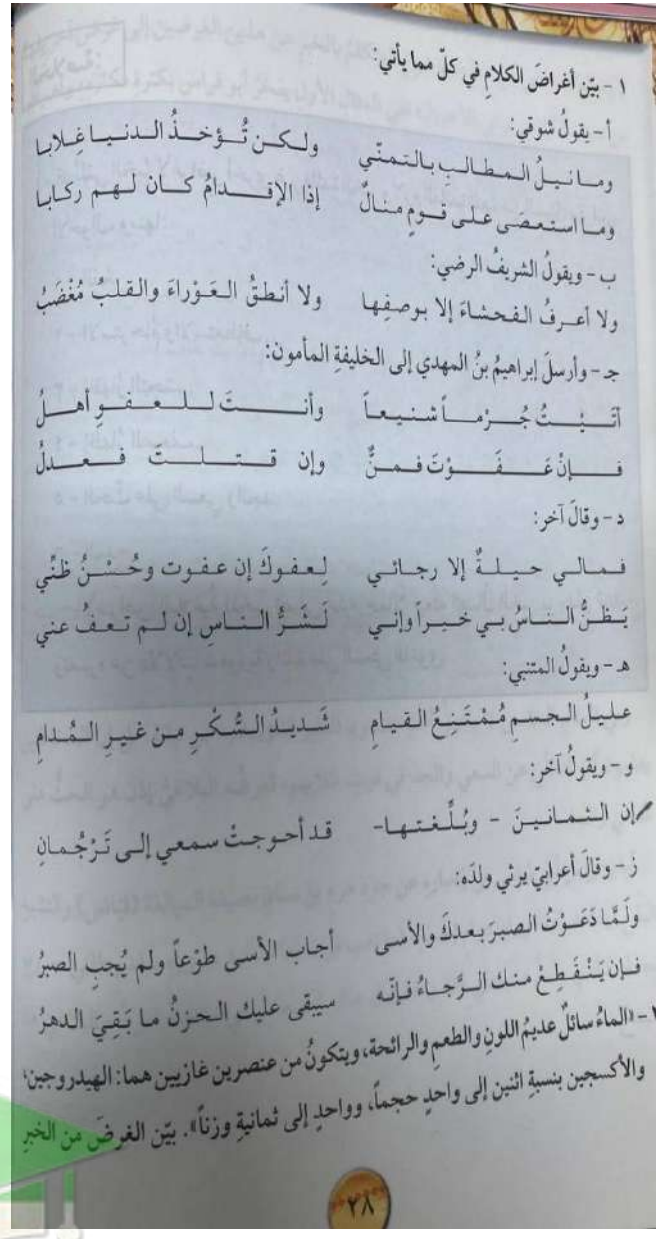 ١ - بيّن أغراضَ الكلامِ في كلّ مما يأتي:
أ - يقولُ شوقي:
وما نيلُ المطالب بالتمنّي ولكن تُؤخذُ الدنيا غلابا
وما استعصَى على قومٍ منالٌ إذا الإقدامُ كان لهم ركابا
ب - ويقولُ الشريفُ الرضي:
ولا أعرفُ الفحشاءَ إلا بوصفِها ولا أنطقُ العَوْراءَ والقلبُ مُغْضَبُ
جـ - وأرسلَ إبراهيمُ بنُ المهدي إلى الخليفةِ المأمون:
أتَيْتُ جُرْماً شنيعاً وأنتَ للعفوِ أهلُ
فإنْ عَفَوْتَ فمنٌّ وإن قتلتَ فعدلُ
د - وقالَ آخر:
فمالي حيلةٌ إلا رجائي لِعفوكَ إن عفوت وحُسْنُ ظنّي
يَظنُّ الناسُ بي خيراً وإني لشَرُّ الناسِ إن لم تعفُ عني
هـ - ويقولُ المتنبي:
عليلُ الجسمِ مُمْتَنِعُ القيامِ شَديدُ السُّكْرِ من غيرِ المُدامِ
و - ويقولُ آخر:
إن الثمانينَ - وبُلِّغتها- قد أحوجتْ سمعي إلى تَرْجُمانِ
ز - وقالَ أعرابيّ يرثي ولدَه:
ولَمَّا دَعَوْتُ الصبرَ بعدكَ والأسى أجاب الأسى طوْعاً ولم يُجبِ الصبرُ
فإن يَنْقَطِعْ منك الرَّجاءُ فإنّه سيبقى عليك الحزنُ ما بَقِيَ الدهرُ
٢ - «الماءُ سائلٌ عديمُ اللونِ والطعمِ والرائحة، ويتكونُ من عنصرين غازيين هما: الهيدروجين؛
والأكسجين بنسبةِ اثنين إلى واحدٍ حجماً، وواحدٍ إلى ثمانيةٍ وزناً». بيّن الغرضَ من الخبرِ
٢٨